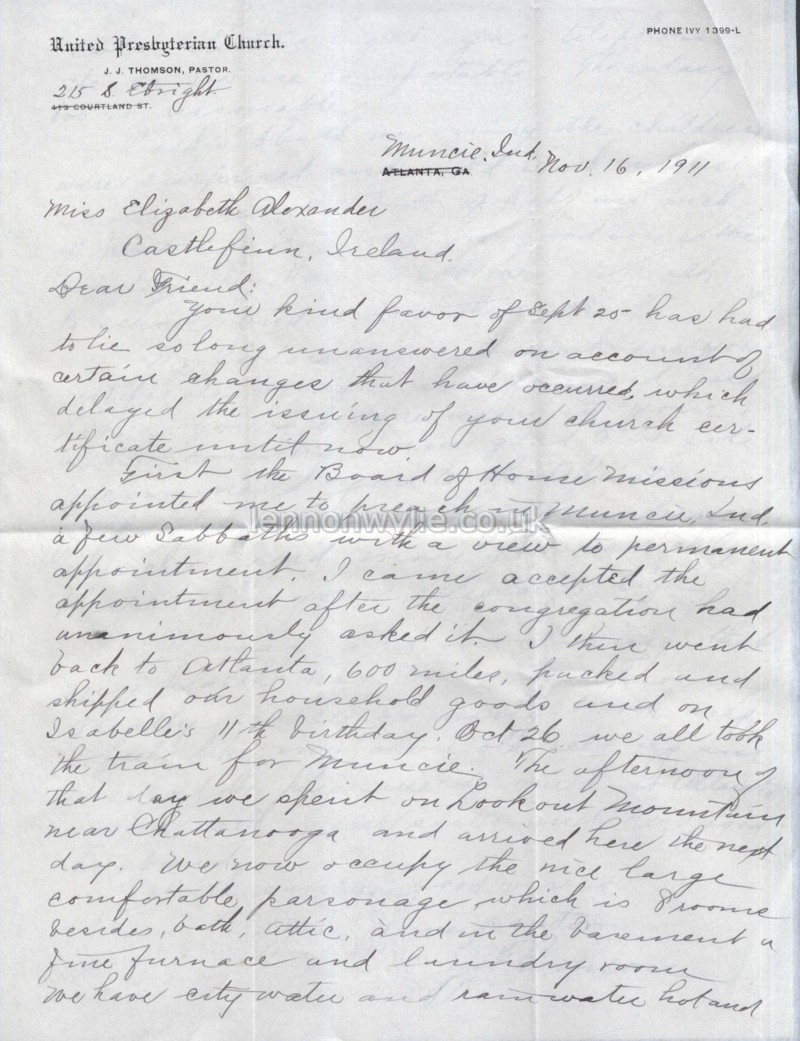 United Presbyterian Church.
PHONE IVY 1399-L
J. J. THOMSON, PASTOR.
215 S. Ebright.
413 COURTLAND ST.
Muncie, Ind. Nov. 16, 1911
ATLANTA, GA
Miss Elizabeth Alexander
Castlefinn, Ireland.
Dear Friend:
Your kind favor of Sept 25 has had
to lie so long unanswered on account of
certain changes that have occurred, which
delayed the issuing of your church cer-
tificate until now.
First the Board of Home Missions
appointed me to preach in Muncie, Ind.
lennonwylie.co.uk
a few Sabbaths with a view to permanent
appointment. I came accepted the
appointment after the congregation had
unanimously asked it. I then went
back to Atlanta, 600 miles, packed and
shipped our household goods and on
Isabelle's 11th birthday. Oct 26 we all took
the train for Muncie. The afternoon of
that day we spent on Lookout Mountain
near Chattanooga and arrived here the next
day. We now occupy the nice large
comfortable parsonage which is 8 rooms
besides, bath, attic, and in the basement a
fine furnace and laundry room
We have city water and rain water hot and